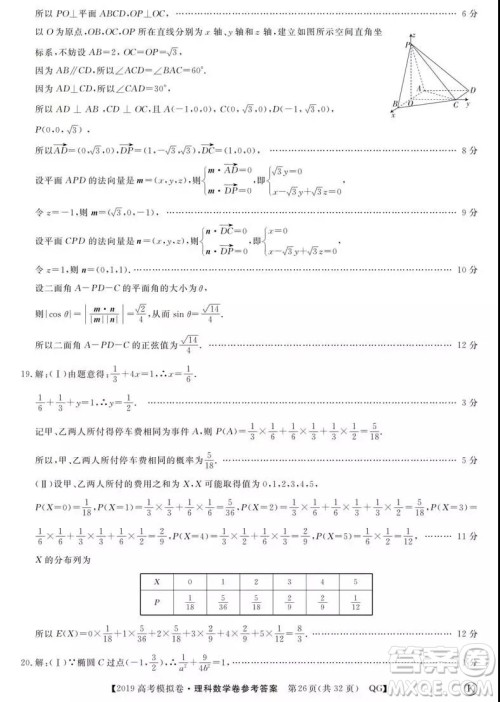 所以 PO⊥平面 ABCD,OP⊥OC. …… 6 分
以 O 为原点,OB,OC,OP 所在直线分别为 x 轴、y 轴和 z 轴,建立如图所示空间直角坐
标系,不妨设 AB=2, OC=OP=√3,
因为 AB∥CD,所以∠ACD=∠BAC=60°.
因为 AD⊥CD,所以∠CAD=30°,
所以 AD⊥AB, CD⊥OC,且 A(-1,0,0),C(0,√3,0),D(-1,√3,0),
P(0,0,√3).
所以AD=(0,√3,0),DP=(1,-√3,√3),DC=(1,0,0). …… 8 分
设平面 APD 的法向量是 m=(x,y,z),则{m·AD=0 m·DP=0,即{√3y=0 x-√3y+√3z=0.
令 z=-1,则 m=(√3,0,-1). …… 9 分
设平面 CPD 的法向量是 n=(x,y,z),则{n·DC=0 n·DP=0,即{x=0 x-√3y+√3z=0.
令 z=1,则 n=(0,1,1). …… 10 分
设二面角 A-PD-C 的平面角的大小为 θ,
则|cos θ|=|m·n/|m||n||=√2/4,从而 sin θ=√14/4.
所以二面角 A-PD-C 的正弦值为√14/4. …… 12 分
19.解:(Ⅰ)由题意得:1/3+4x=1,∴x=1/6.
1/6+1/3+y=1,∴y=1/2. …… 3 分
记甲、乙两人所付得停车费相同为事件 A,则 P(A)=1/3×1/6+1/6×1/3+1/6×1/2+1/6×1/2=5/18.
所以,甲、乙两人所付得停车费相同的概率为5/18. …… 6 分
(Ⅱ)设甲、乙两人所付停车的费用之和为 X,X 可能取得值为 0,1,2,3,4,5,
P(X=0)=1/18,P(X=1)=1/3×1/3+1/6×1/6=5/36,P(X=2)=5/18,P(X=3)=
1/6×1/6+1/6×1/3+1/6×1/2=2/9,P(X=4)=2/9,P(X=5)=1/6×1/2=1/12. …… 11 分
X 的分布列为
X 0 1 2 3 4 5
P 1/18 5/36 5/18 2/9 2/9 1/12
所以 E(X)=0×1/18+1×5/36+2×5/18+3×2/9+4×2/9+5×1/12=8/3. …… 12 分
20.解:(Ⅰ)∵椭圆 C 过点(-1,3/2),∴1/a²+9/4b²=1,
【2019 高考模拟卷·理科数学卷参考答案 第 26 页(共 32 页) QG】